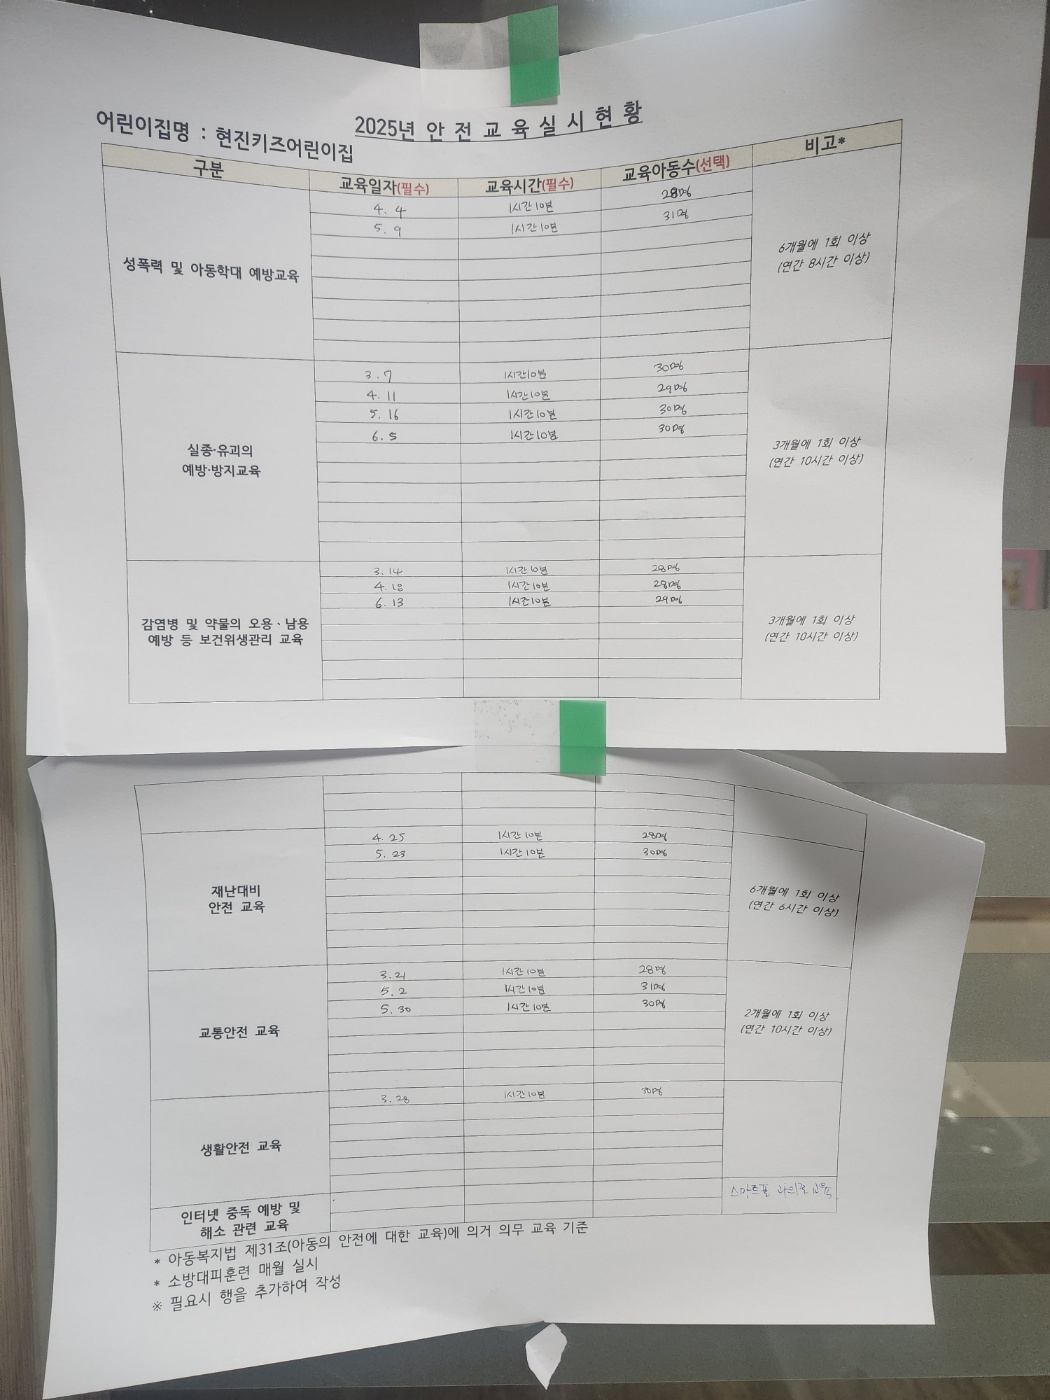 2025년 안 전 교 육 실 시 현 황
어린이집명 : 현진키즈어린이집
구분 교육일자(필수) 교육시간(필수) 교육아동수(선택) 비고*
성폭력 및 아동학대 예방교육
4. 4 1시간10분 28명
5. 9 1시간10분 31명
6개월에 1회 이상
(연간 8시간 이상)
실종·유괴의
예방·방지교육
3. 7 1시간10분 30명
4. 11 1시간10분 29명
5. 16 1시간10분 30명
6. 5 1시간10분 30명
3개월에 1회 이상
(연간 10시간 이상)
감염병 및 약물의 오용·남용
예방 등 보건위생관리 교육
3. 14 1시간10분 28명
4. 18 1시간10분 28명
6. 13 1시간10분 29명
3개월에 1회 이상
(연간 10시간 이상)
재난대비
안전 교육
4. 25 1시간10분 28명
5. 23 1시간10분 30명
6개월에 1회 이상
(연간 6시간 이상)
교통안전 교육
3. 21 1시간10분 28명
5. 2 1시간10분 31명
5. 30 1시간10분 30명
2개월에 1회 이상
(연간 10시간 이상)
생활안전 교육
3. 28 1시간10분 30명
인터넷 중독 예방 및
해소 관련 교육
스마트폰 과의존 교육
* 아동복지법 제31조(아동의 안전에 대한 교육)에 의거 의무 교육 기준
* 소방대피훈련 매월 실시
※ 필요시 행을 추가하여 작성